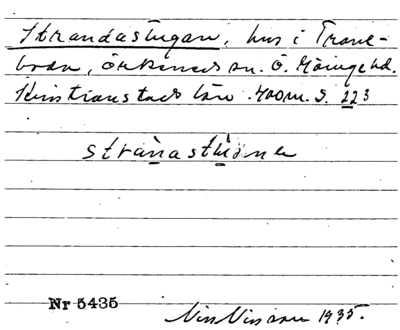 Strandastugan, hus i Trane-
boda, Örkeneds sn. Ö. Göinge hd.
Kristianstads län. Koorn. S. 223
strànastùᵫnen
Nr 5435
Nils Nilsson 1935.